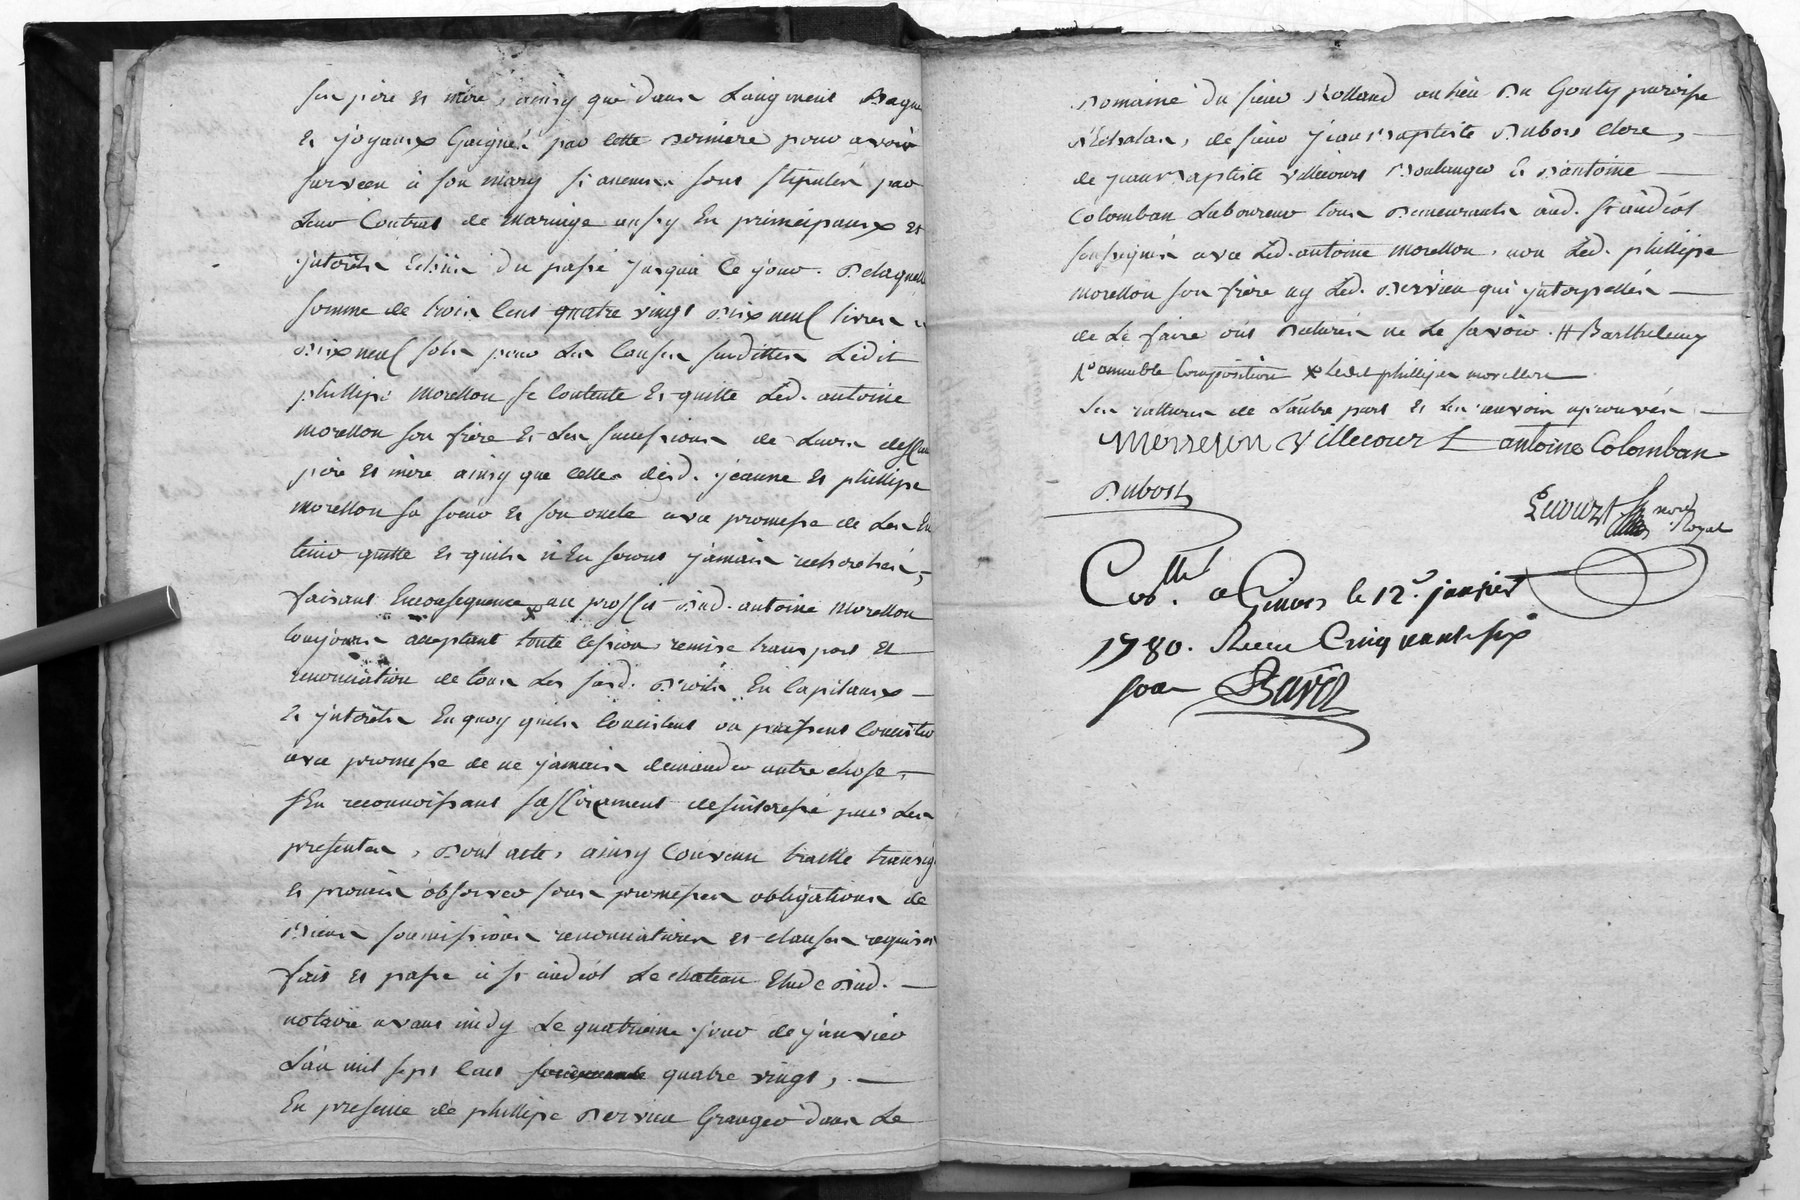 ses pere et mere, ainsy que dans L'augment Bague
et joyaux Gaignés par cette derniere pour avoir
survecu à son mary si aucuns sont stipulés par
Leur Contrat de mariage aussy En principaux et
jnterets Echus du passé jusqua Ce jour. De laquelle
somme de trois Cens quatre vingt dix neuf livres
dix neuf sols pour Les Causes susdittes Ledit
phillipe morellon se Contente Et quitte Led. antoine
morellon son frere Et Les successions de Leurs deffun
pere et mere ainsy que Celles desd. jeanne et phillipe
morellon sa soeur et son oncle avec promesse de Les En
tenir quitte et quils n'En seront jamais recherchés,
faisant Enconsequence au proffit dud. antoine morellon
toujours acceptant toute Cession remise transport et
renonciation de tous Les susd. droits En Capitaux
et jnterets En quoy quils Consistent ou puissent Consister
avec promesse de ne jamais demander autre chose,
s'En reconnoissant suffisament desinteressé par Les
presentes, dont acte, ainsy Convenu traitté transigé
et promis observer sous promesses obligations de
Biens soumissions renonciations et clauses requises
fait et passé à st andéol Le chateau Etude dud.
notaire avant midy Le quatrieme jour de janvier
L'an mil sept Cent quatre vingt,
En presence de phillipe Dervieu Granger dans Le
Domaine du sieur Rolland au lieu Du Gouty paroisse
d'Echalas, de sieur jean Baptiste Dubost clerc,
de jean Baptiste Villecourt Boulanger et d'antoine
Colomban Laboureur tous Demeurants aud. st andéol
soussignés avec Led. antoine morellon, non Led. phillipe
morellon son frere ny Led. Dervieu qui jnterpellés
de Le faire ont Declarés ne Le savoir. # Barthelemy
p.r amiable Composition x Ledit phillipes morellon
Les rattures de L'autre part et Les renvois aprouvés
Morrelon Villecourt antoine Colomban
Dubost
not. Royal
Con.tllé a Givors le 12.e janvier
1780. Recu Cinquante six
sols